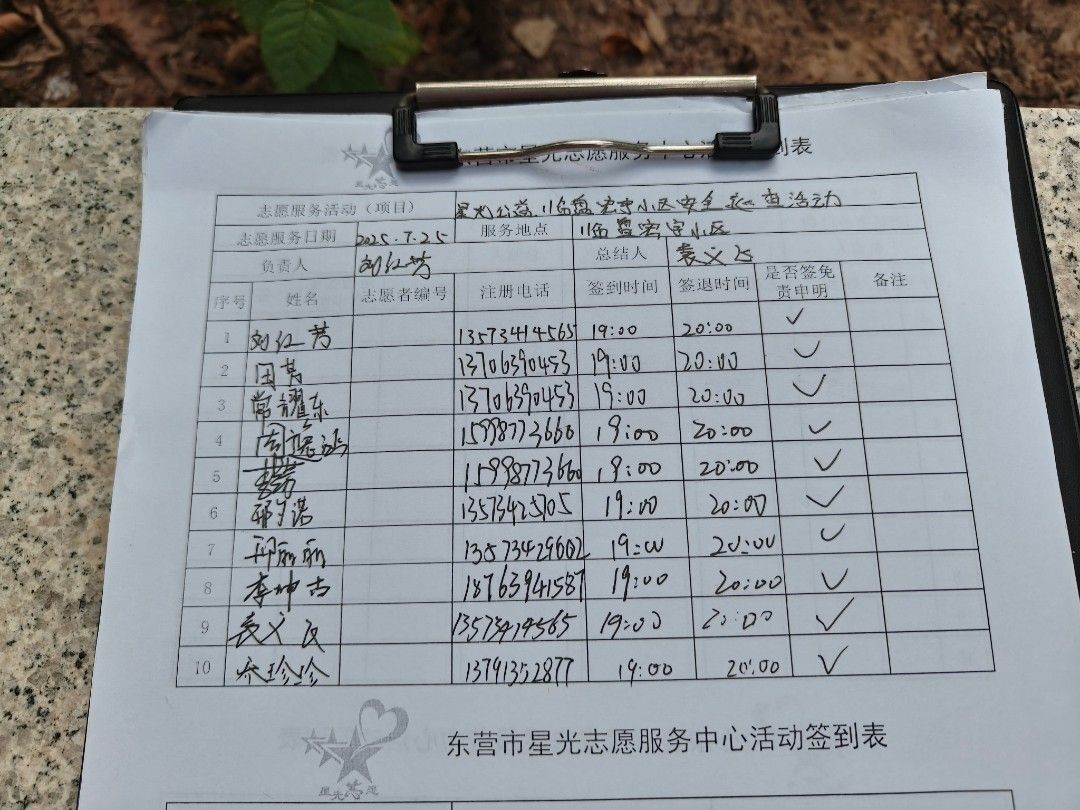 东营市星光志愿服务中心活动签到表
星光志愿
志愿服务活动（项目） 星光公益临盘宏宇小区安全巡查活动
志愿服务日期 2025.7.25 服务地点 临盘宏宇小区
负责人 刘红芳 总结人 袁义飞
序号 姓名 志愿者编号 注册电话 签到时间 签退时间 是否签免责申明 备注
1 刘红芳 13573414565 19:00 20:00 ✓
2 13706390453 19:00 20:00 ✓
3 常耀东 13706390453 19:00 20:00 ✓
4 15998773660 19:00 20:00 ✓
5 15998773660 19:00 20:00 ✓
6 13573425705 19:00 20:00 ✓
7 邢丽丽 13573429602 19:00 20:00 ✓
8 李坤吉 18763941587 19:00 20:00 ✓
9 袁义飞 13573414565 19:00 20:00 ✓
10 珍珍 13791352877 19:00 20:00 ✓
东营市星光志愿服务中心活动签到表
星光志愿